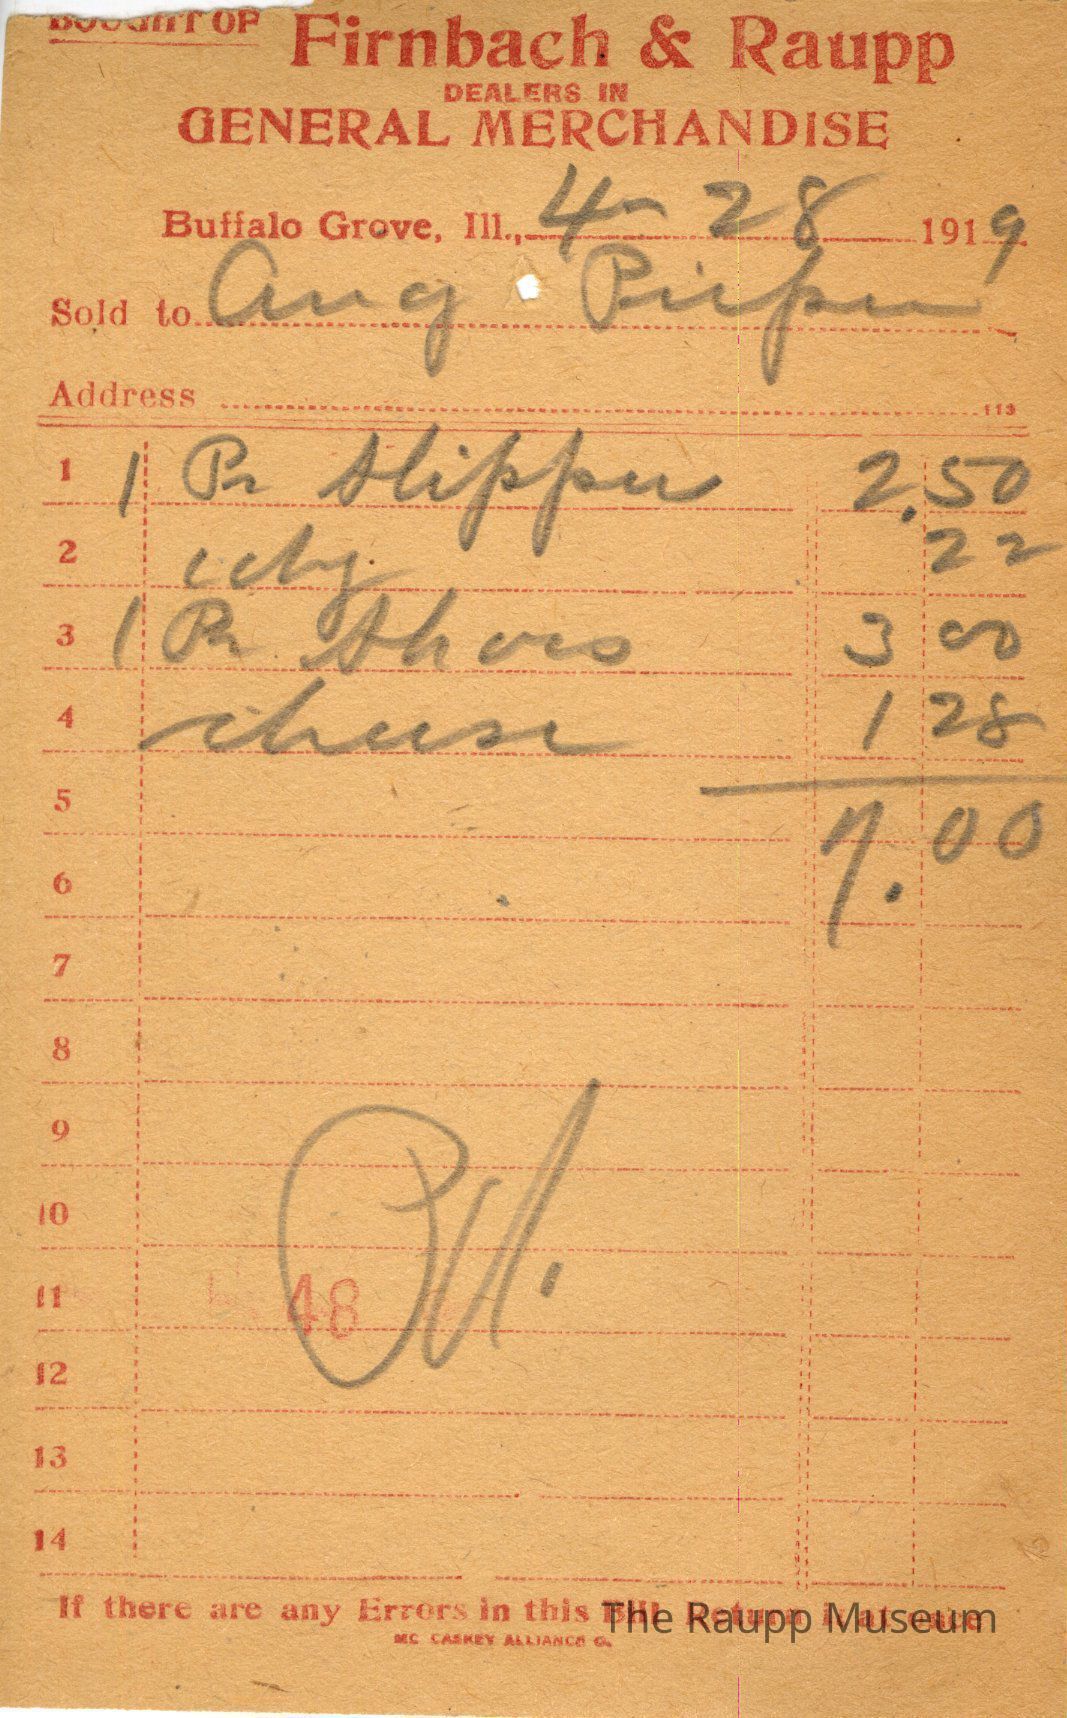 BOUGHT OF Firnbach & Raupp
DEALERS IN
GENERAL MERCHANDISE
Buffalo Grove, Ill., 4-28 1919
Sold to Aug
Address 113
1 1 Pr Slipper 2.50
2 22
3 1 Pr Shoes 3 00
4 cheese 1 28
5 7.00
6
7
8
9
10
11 48
12
13
14
If there are any Errors in this Bill Return it at once
The Raupp Museum
MC CASKEY ALLIANCE O.